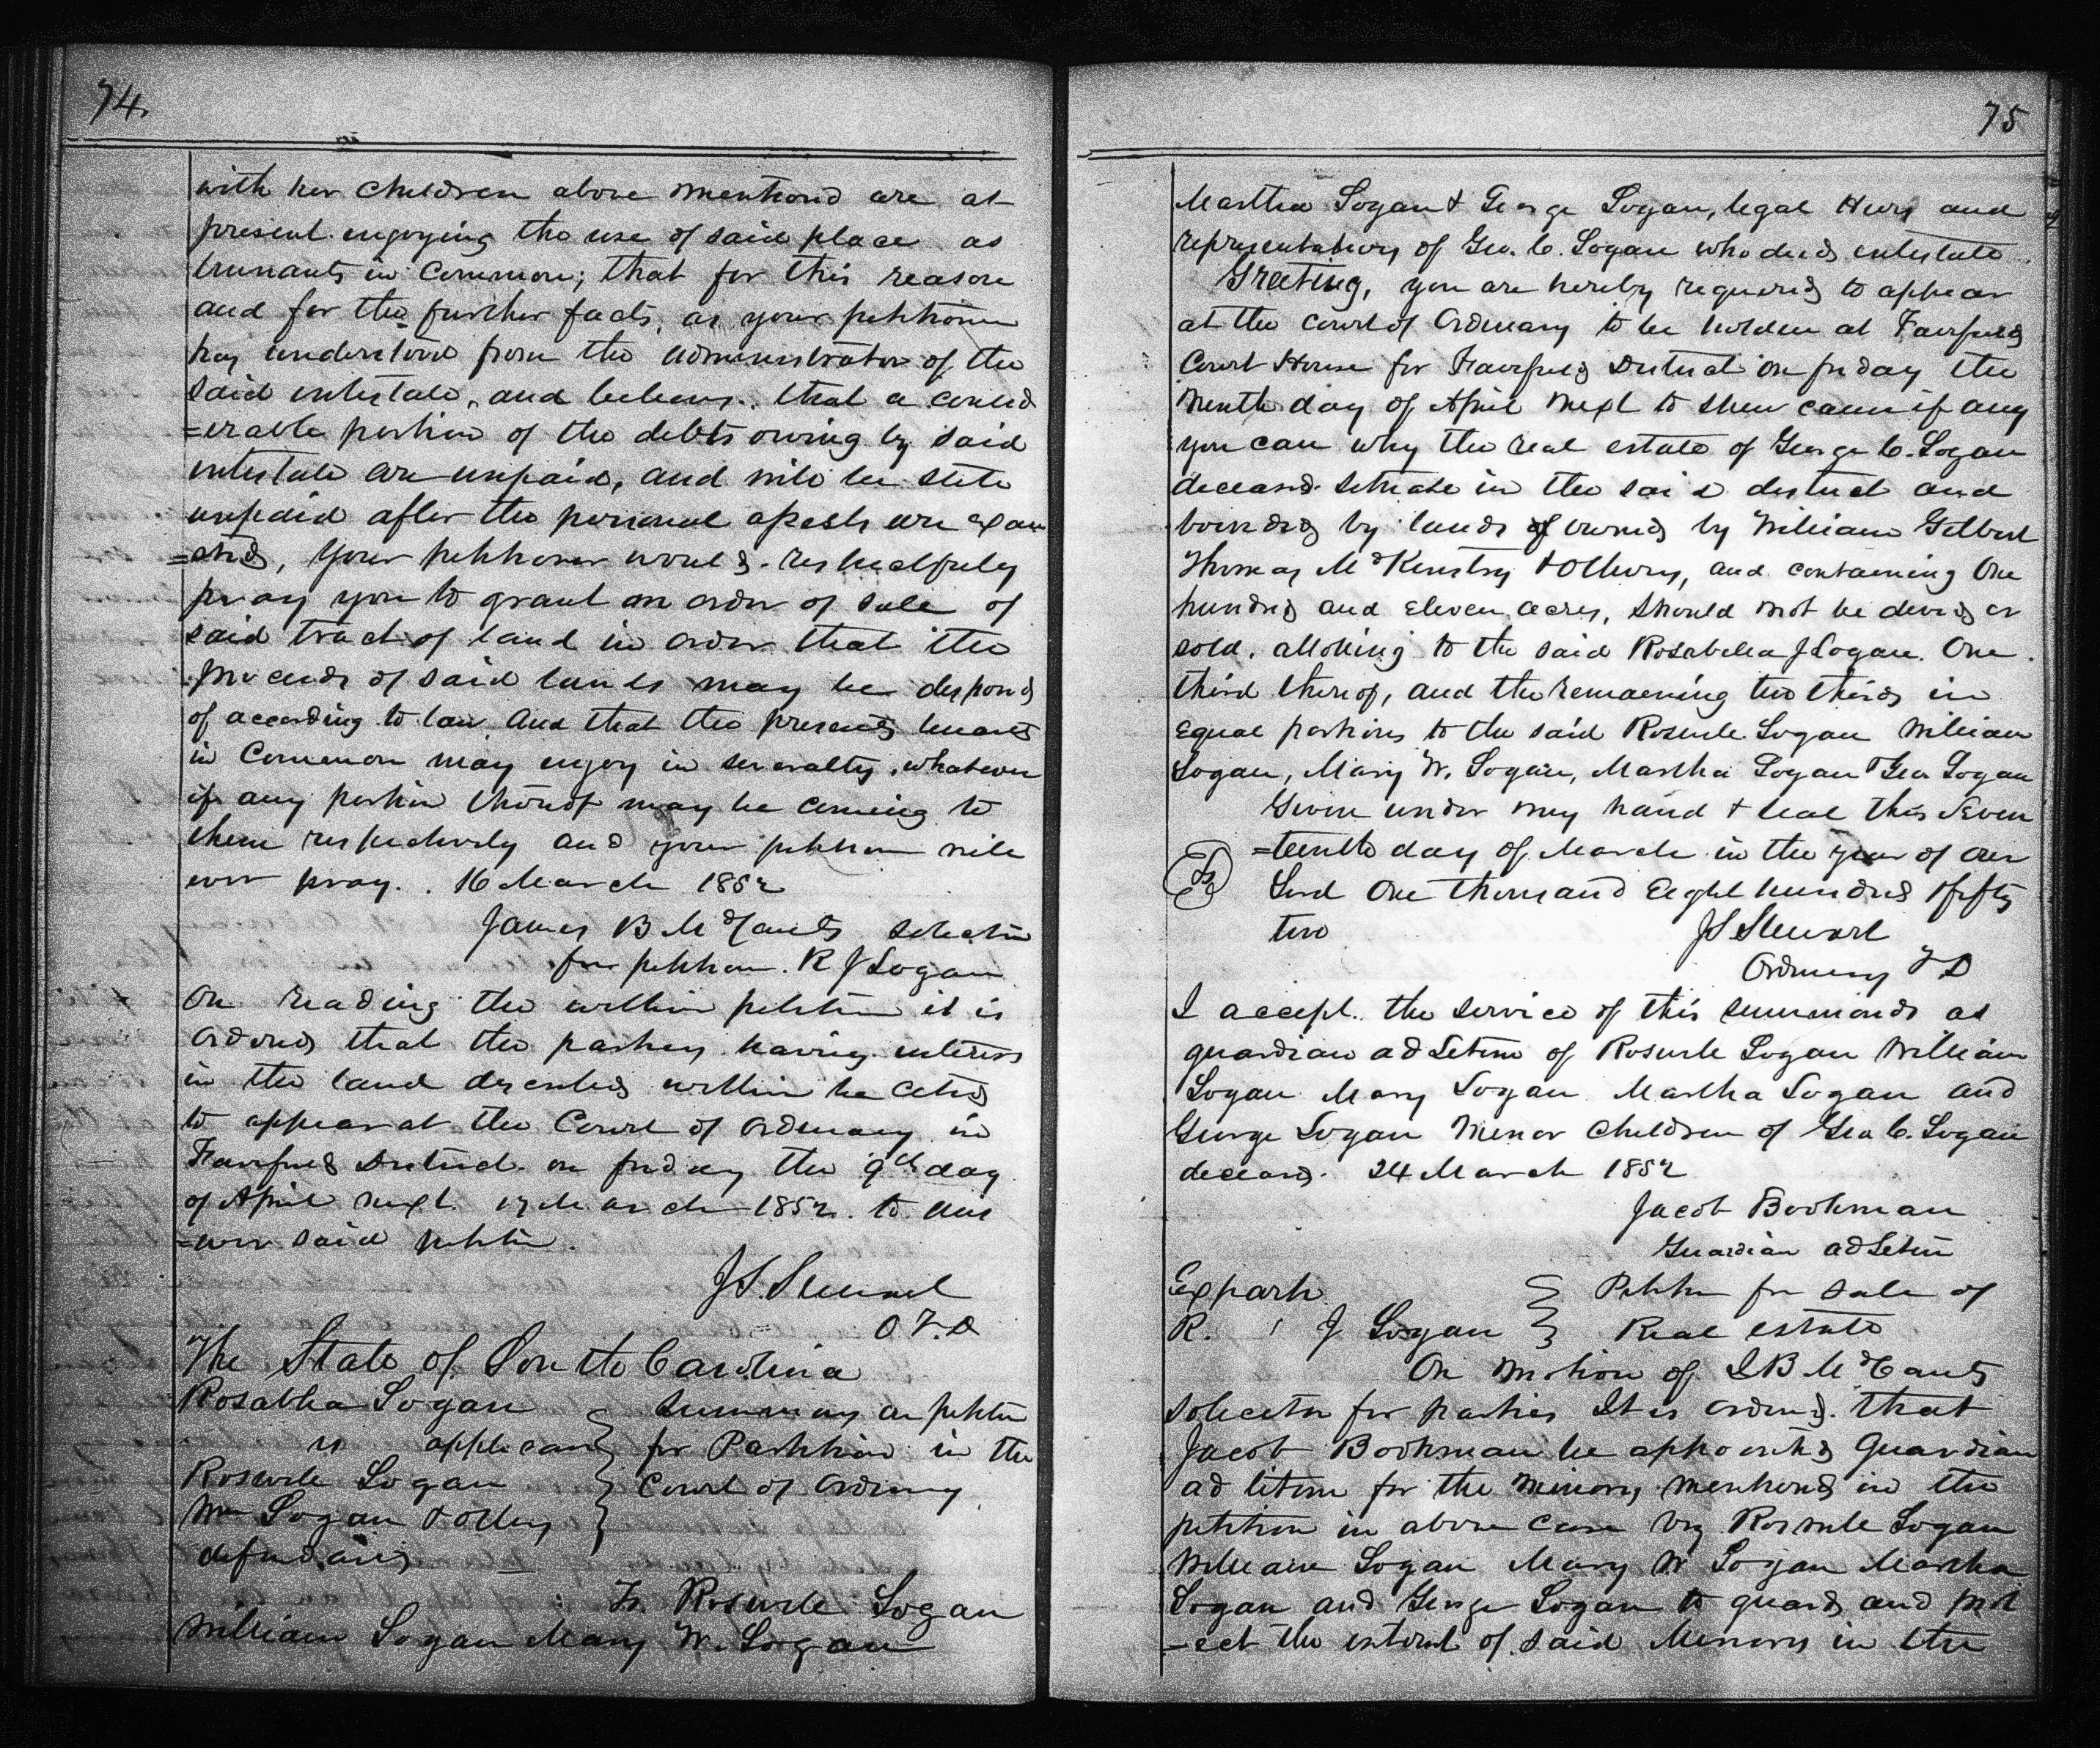 74.
with her children above mentiond are at
present enjoying the use of said place as
tennants in common; that for this reason
and for the further facts, as your petitioner
has understood from the administrator of the
said intestate, and believes. that a consid
=erable portion of the debts owing by said
intestate are unpaid, and will be still
unpaid after the personal assets are exau
=sted, your petitioner would respectfully
pray you to grant an order of sale of
said tract of land in order that the
proceeds of said lands may be disposed
of according to law. And that the presents tenants
in common may enjoy in severalty, whatever
if any portion thereof may be coming to
them respectively and your petitioner will
ever pray. 16 March 1852
James B McCants Solicitor
for petitioner. R J Logan
On reading the within petition it is
ordered that the parties having interess
in the land described within be cited
to appear at the Court of Ordinary in
Fairfield District on friday the 9th day
of April next. 17 March 1852. to ans
=wer said petition.
J.S. Stewart
O F. D
The State of South Carolina
Rosabella Logan } Summons in petition
vs applicant } for Partition in the
Rosurle Logan } Court of Ordinary
Wm Logan & others }
defendants
To Rosurle Logan
William Logan Mary W. Logan
75
Martha Logan & George Logan, legal Heirs and
representatives of Geo. C. Logan who died intestate
Greeting, you are hereby required to appear
at the court of Ordinary to be holden at Fairfield
Court House for Fairfield District on friday the
Ninth day of April next to shew cause if any
you can why the real estate of George C. Logan
deceasd. situate in the said district and
bounded by lands of owned by William Gilbert
Thomas McKinstry & others, and containing One
hundred and Eleven acres, should not be divided or
sold. allotting to the said Rosabella J Logan. One
third thereof, and the remaining two thirds in
Equal portions to the said Rosurle Logan William
Logan, Mary W. Logan, Martha Logan & Geo Logan
Given under my hand & seal this Seven
=teenth day of March in the year of our
Lord One thousand Eight hundred & fifty
two J S Stewart
Ordinary F D
I accept. the service of this summonds as
guardian ad Litem of Rosurle Logan William
Logan Mary Logan Martha Logan and
George Logan Minor children of Geo C. Logan
deceasd. 24 March 1852
Jacob Bookman
Guardian ad Litem
Exparte } Petition for sale of
R. J Logan } Real estate
On Motion of J B McCants
Solicitor for parties It is orderd. that
Jacob Bookman be appointed Guardian
ad litem for the Minors mentioned in the
petition in above case viz Rosurle Logan
William Logan Mary W Logan Martha
Logan and George Logan to guard and prot
=ect the interest of said Minors in the